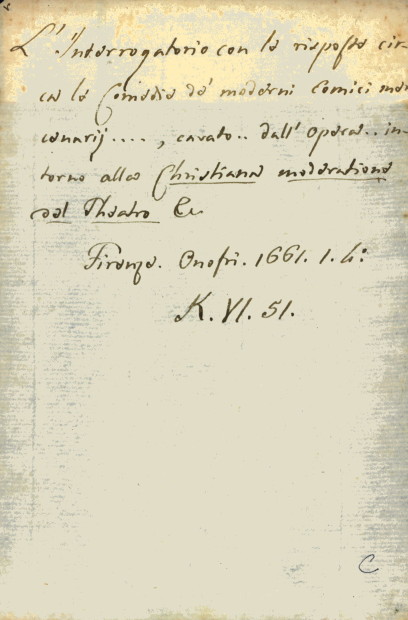 L'Interrogatorio con le risposte cir-
ca le Comedie de' moderni Comici mer
cenarij...., cavato.. dall'opera.. in-
torno alla Christiana moderatione
del Theatro &c
Firenze. Onofri. 1661. 1. 4º:
K. VI. 51.
C